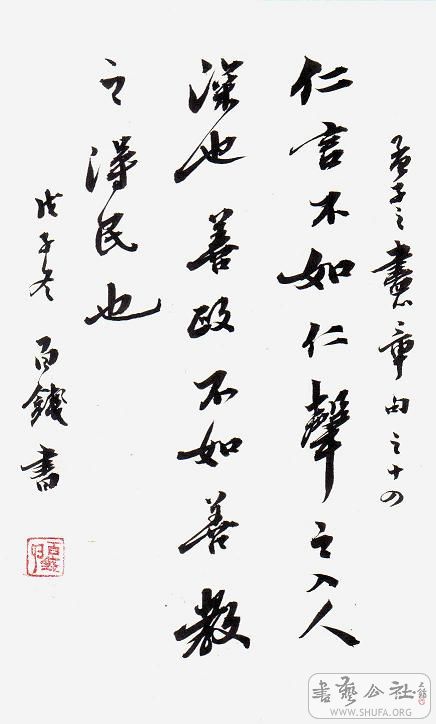 孟子之盡心章由之十四
仁言不如仁聲之入人
深也善政不如善教
之得民也
戊子冬 百 書
書藝公社
WWW.SHUFA.ORG